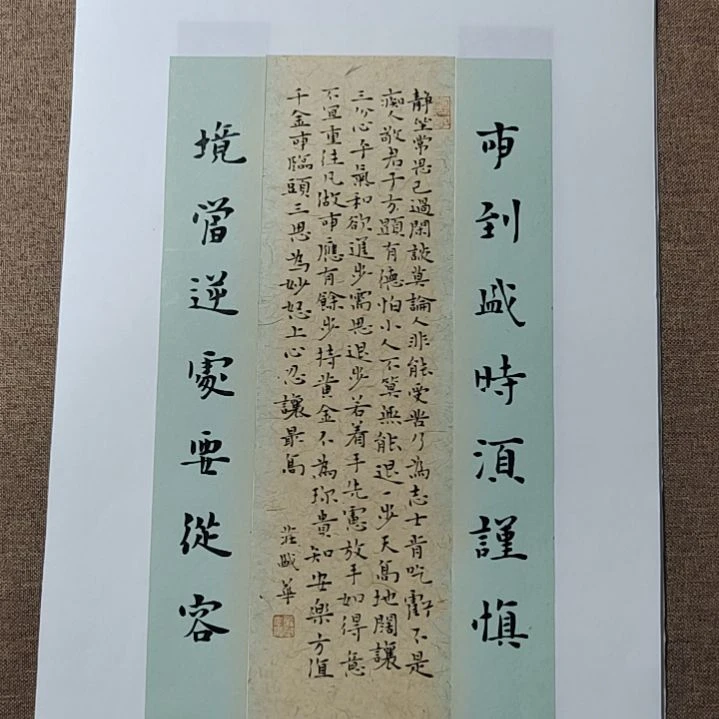 事到盛時須謹慎
静坐常思己過閑談莫論人非能受苦乃為志士肯吃虧不是
痴人敬君子方顕有德怕小人不算無能退一步天高地闊讓
三分心平氣和欲進步需思退步若着手先慮放手如得意
不宜重往凡做事應有餘步持黄金不為珍貴知安樂方值
千金事臨頭三思為妙怒上心忍讓最高
莊盛華
境當逆處要從容